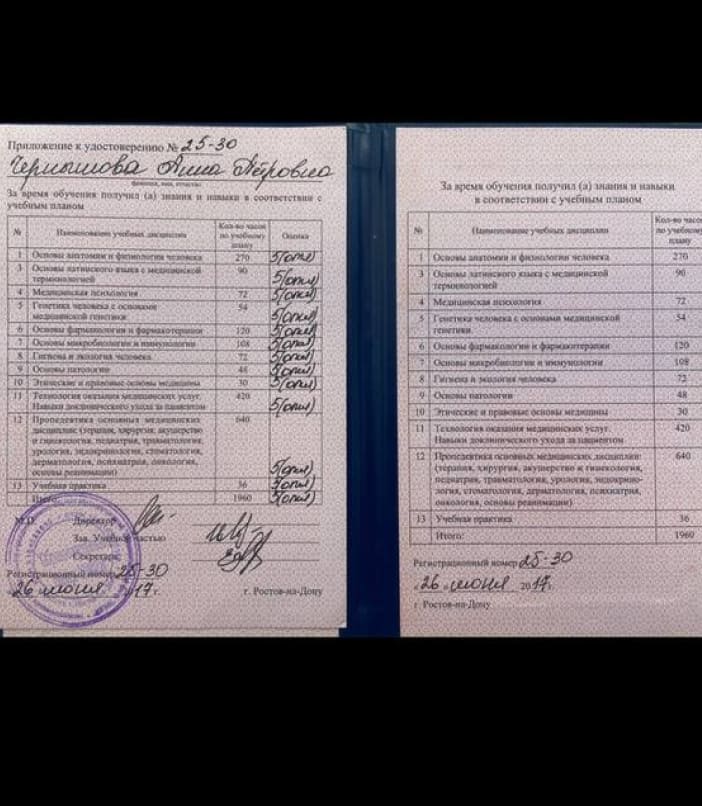 Приложение к удостоверению № 25-30
Чернышова Анна Петровна
фамилия, имя, отчество
За время обучения получил (а) знания и навыки в соответствии с
учебным планом
№ Наименование учебных дисциплин Кол-во часов по учебному плану Оценка
1 Основы анатомии и физиологии человека 270 5(отл)
3 Основы латинского языка с медицинской
терминологией 90 5(отл)
4 Медицинская психология 72 5(отл)
5 Генетика человека с основами
медицинской генетики 54 5(отл)
6 Основы фармакологии и фармакотерапии 120 5(отл)
7 Основы микробиологии и иммунологии 108 5(отл)
8 Гигиена и экология человека 72 5(отл)
9 Основы патологии 48 5(отл)
10 Этические и правовые основы медицины 30 5(отл)
11 Технология оказания медицинских услуг.
Навыки доклинического ухода за пациентом 420 5(отл)
12 Пропедевтика основных медицинских
дисциплин: (терапия, хирургия, акушерство
и гинекология, педиатрия, травматология,
урология, эндокринология, стоматология,
дерматология, психиатрия, онкология,
основы реанимации) 640 5(отл)
13 Учебная практика 36 5(отл)
Итого: 1960 5(отл)
М.П. Директор
Зав. Учебной частью
Секретарь
Регистрационный номер 25-30
26 июня 2017 г. г. Ростов-на-Дону
За время обучения получил (а) знания и навыки
в соответствии с учебным планом
№ Наименование учебных дисциплин Кол-во часов по учебному плану
1 Основы анатомии и физиологии человека 270
3 Основы латинского языка с медицинской
терминологией 90
4 Медицинская психология 72
5 Генетика человека с основами медицинской
генетики 54
6 Основы фармакологии и фармакотерапии 120
7 Основы микробиологии и иммунологии 108
8 Гигиена и экология человека 72
9 Основы патологии 48
10 Этические и правовые основы медицины 30
11 Технология оказания медицинских услуг.
Навыки доклинического ухода за пациентом 420
12 Пропедевтика основных медицинских дисциплин:
(терапия, хирургия, акушерство и гинекология,
педиатрия, травматология, урология, эндокрино-
логия, стоматология, дерматология, психиатрия,
онкология, основы реанимации) 640
13 Учебная практика 36
Итого: 1960
Регистрационный номер 25-30
« 26 » июня 2017г.
г. Ростов-на-Дону